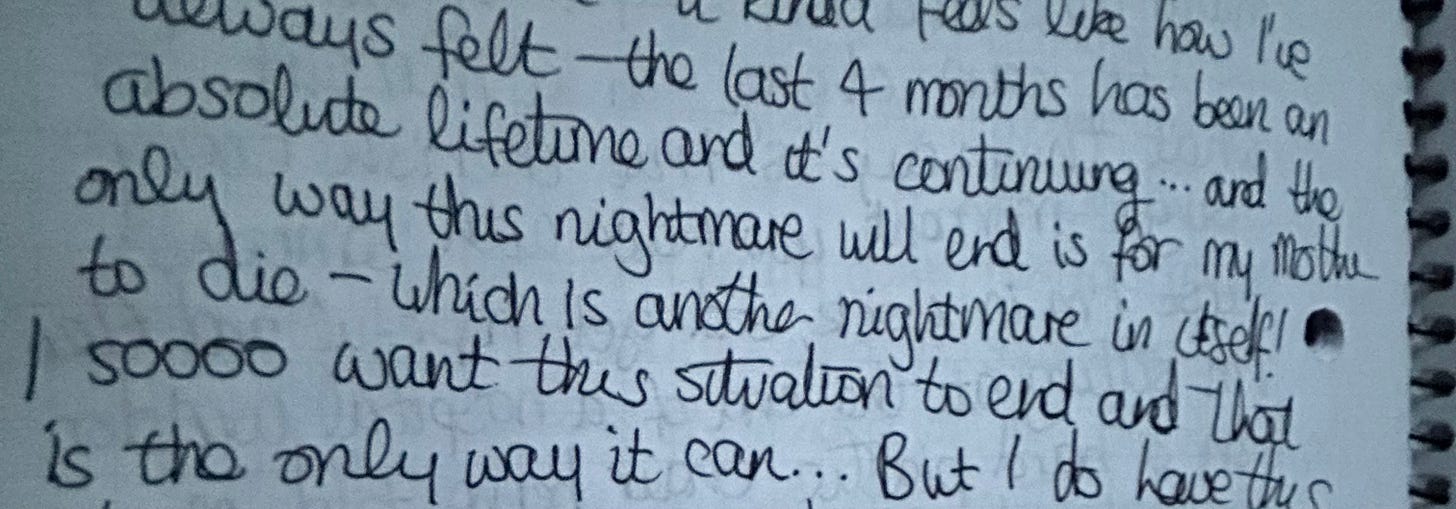 always felt – the last 4 months has been an
absolute lifetime and it's continuing... and the
only way this nightmare will end is for my mother
to die – which is another nightmare in itself!
I soooo want this situation to end and that
is the only way it can... But I do have this